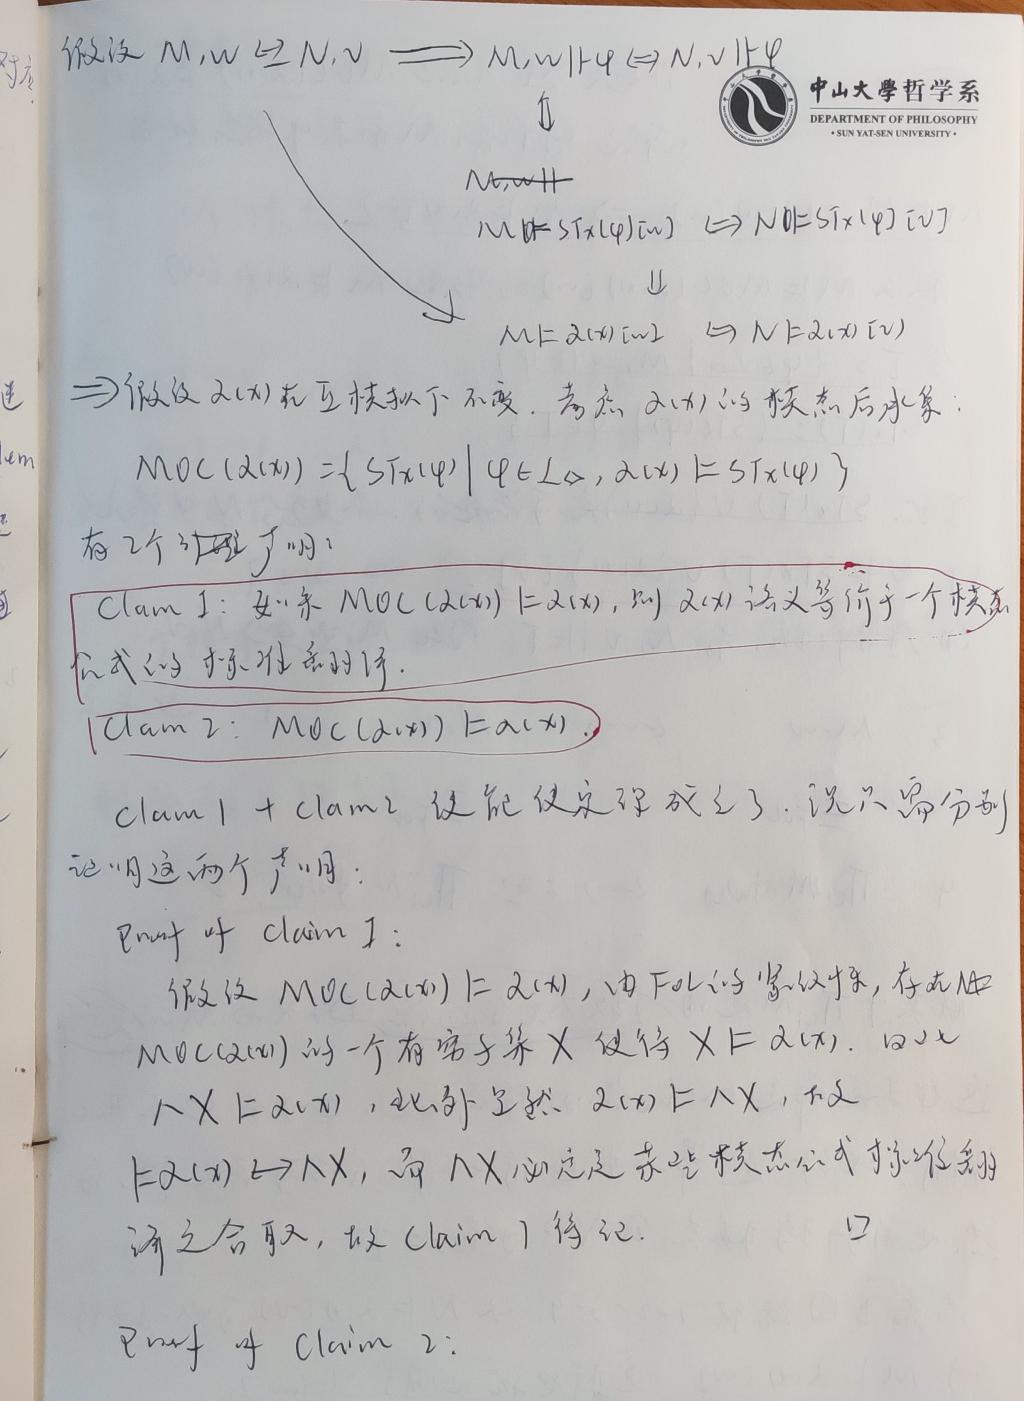 假设 M,w ↔ N,v ⟹ M,w⊩φ ⟺ N,v⊩φ
中山大學哲学系
DEPARTMENT OF PHILOSOPHY
• SUN YAT-SEN UNIVERSITY •
⇕
M,w⊩
M⊨STx(φ)[w] ⟺ N⊨STx(φ)[v]
⇓
M⊨α(x)[w] ⟺ N⊨α(x)[v]
⟹ 假设 α(x) 在互模拟下不变. 考虑 α(x) 的模态后承集:
MOC(α(x)) = {STx(φ) | φ∈L◇, α(x)⊨STx(φ)}
有2个声明:
Clam 1: 如果 MOC(α(x))⊨α(x), 则 α(x) 语义等价于一个模态
公式的标准翻译.
Clam 2: MOC(α(x))⊨α(x).
Clam 1 + Clam 2 便能使定理成立了. 只需分别
证明这两个声明:
Proof of Claim 1:
假设 MOC(α(x))⊨α(x), 由 FOL的紧致性, 存在
MOC(α(x)) 的一个有穷子集 X 使得 X⊨α(x). 因此
∧X⊨α(x), 此外显然 α(x)⊨∧X, 故
⊨α(x)↔∧X, 而 ∧X 必定是某些模态公式标准翻
译之合取, 故 Claim 1 得证. □
Proof of Claim 2:
对应